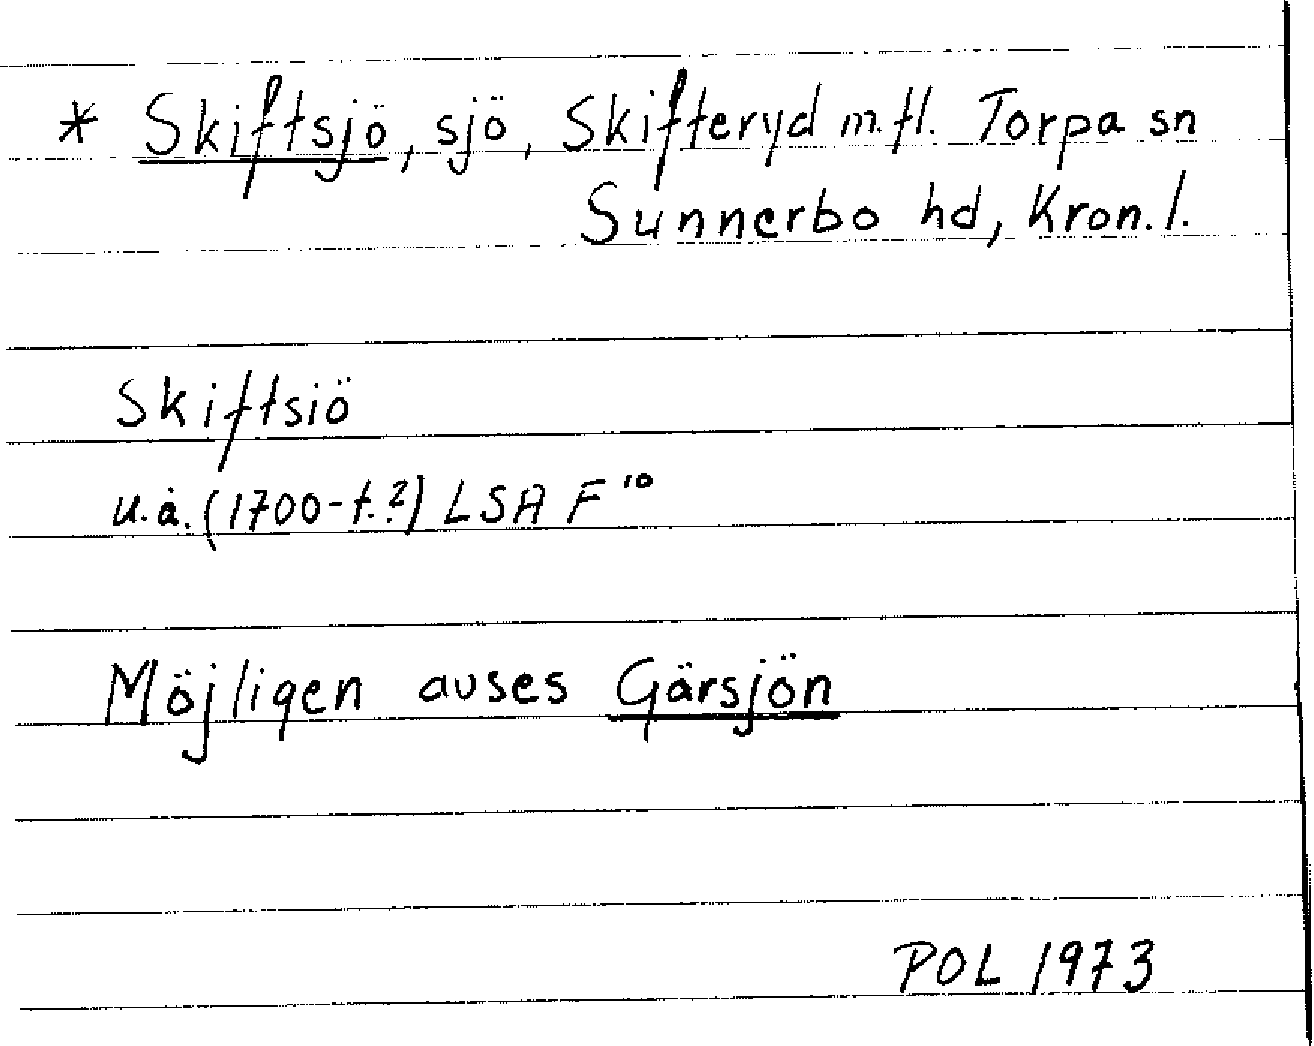 * Skiftsjö, sjö, Skifteryd m.fl. Torpa sn
Sunnerbo hd, Kron. l.
Skiftsiö
u.å. (1700-t.?) LSA F 10
Möjligen avses Gärsjön
POL 1973